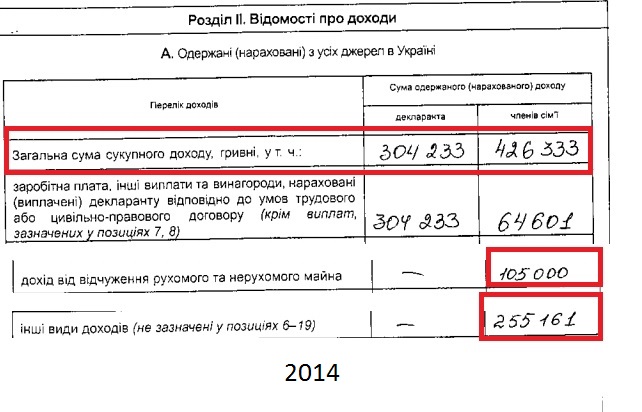 Розділ II. Відомості про доходи
А. Одержані (нараховані) з усіх джерел в Україні
Перелік доходів
Сума одержаного (нарахованого) доходу
декларанта
членів сім'ї
Загальна сума сукупного доходу, гривні, у т. ч.: 304 233 426 333
заробітна плата, інші виплати та винагороди, нараховані
(виплачені) декларанту відповідно до умов трудового
або цивільно-правового договору (крім виплат,
зазначених у позиціях 7, 8) 304 233 64601
дохід від відчуження рухомого та нерухомого майна — 105 000
інші види доходів (не зазначені у позиціях 6–19) — 255 161
2014